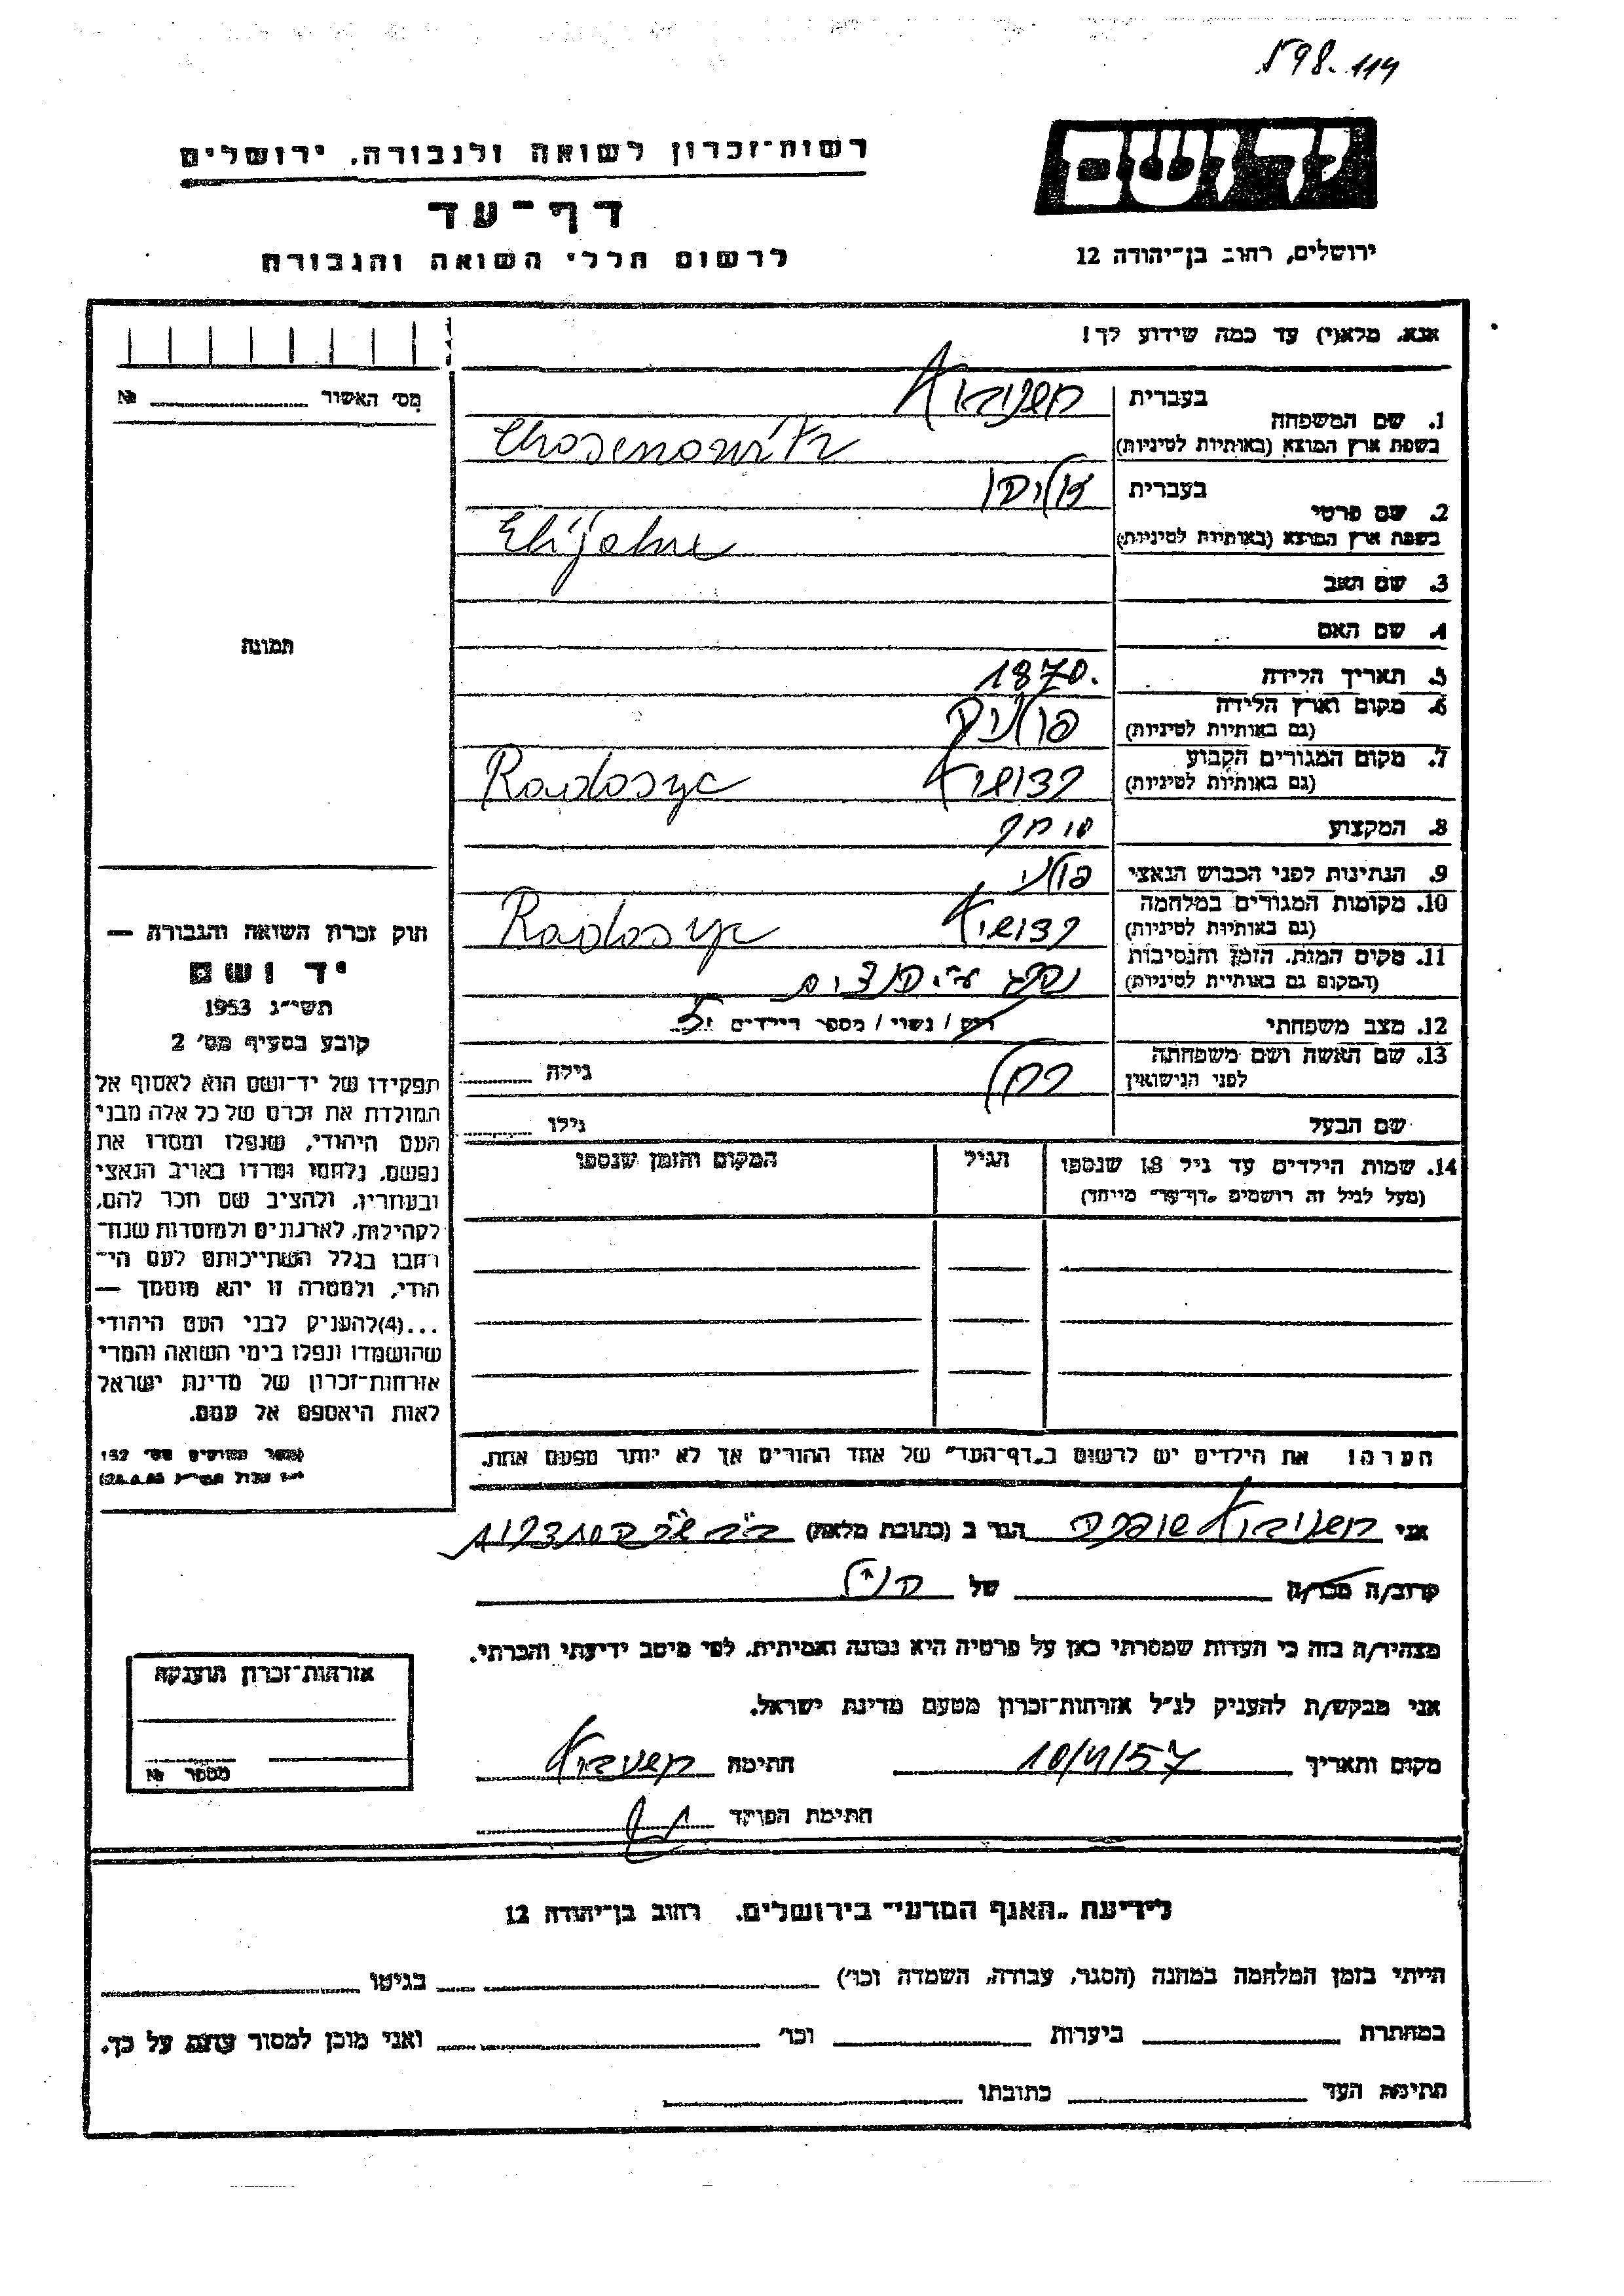 598.114
יד ושם
רשות־זכרון לשואה ולגבורה, ירושלים
דף־עד
ירושלים, רחוב בן־יהודה 12
לרשום חללי השואה והגבורה
אנא, מלא(י) עד כמה שידוע לך!
מס' האשור № 
1. שם המשפחה
בעברית
בשפת ארץ המוצא (באותיות לטיניות)
2. שם פרטי
בעברית
בשפת ארץ המוצא (באותיות לטיניות)
Elijahu
3. שם האב
4. שם האם
תמונה
5. תאריך הלידה 1870.
6. מקום וארץ הלידה
(גם באותיות לטיניות)
7. מקום המגורים הקבוע
(גם באותיות לטיניות)
Radosyc
8. המקצוע סוחר
9. הנתינות לפני הכבוש הנאצי פולני
10. מקומות המגורים במלחמה
(גם באותיות לטיניות)
Radosyc
11. מקום המות, הזמן והנסיבות
(המקום גם באותיות לטיניות)
נהרג ע"י הנאצים
12. מצב משפחתי רוק / נשוי / מספר הילדים
13. שם האשה ושם משפחתה
לפני הנישואין
רחל
גילה
שם הבעל גילו
14. שמות הילדים עד גיל 18 שנספו
(מעל לגיל זה רושמים „דף־עד" מיוחד)
הגיל
המקום והזמן שנספו
הערה! את הילדים יש לרשום ב„דף־העד" של אחד ההורים אך לא יותר מפעם אחת.
חוק זכרון השואה והגבורה —
יד ושם
תשי"ג 1953
קובע בסעיף מס' 2
תפקידו של יד־ושם הוא לאסוף אל
המולדת את זכרם של כל אלה מבני
העם היהודי, שנפלו ומסרו את
נפשם, נלחמו ומרדו באויב הנאצי
ובעוזריו, ולהציב שם וזכר להם,
לקהילות, לארגונים ולמוסדות שנח־
רבו בגלל השתייכותם לעם הי־
הודי, ולמטרה זו יהא מוסמך —
...(4)להעניק לבני העם היהודי
שהושמדו ונפלו בימי השואה והמרי
אזרחות־זכרון של מדינת ישראל
לאות היאספם אל עמם.
אני הגר ב (כתובת מלאה)
קרוב/ה מכר/ה של
מצהיר/ה בזה כי העדות שמסרתי כאן על פרטיה היא נכונה ואמיתית, לפי מיטב ידיעתי והכרתי.
אני מבקש/ת להעניק לנ"ל אזרחות־זכרון מטעם מדינת ישראל.
מקום ותאריך חתימה
חתימת הפוקד
אזרחות־זכרון הוענקה
מספר №
לידיעת „האגף המדעי" בירושלים, רחוב בן־יהודה 12
הייתי בזמן המלחמה במחנה (הסגר, עבודה, השמדה וכו') בגיטו
במחתרת ביערות וכו' ואני מוכן למסור עדות על כך.
חתימת העד כתובתו